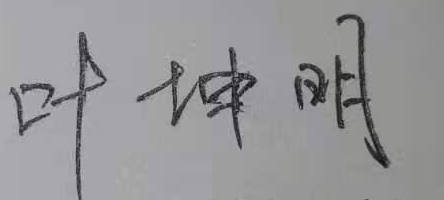 叶坤明